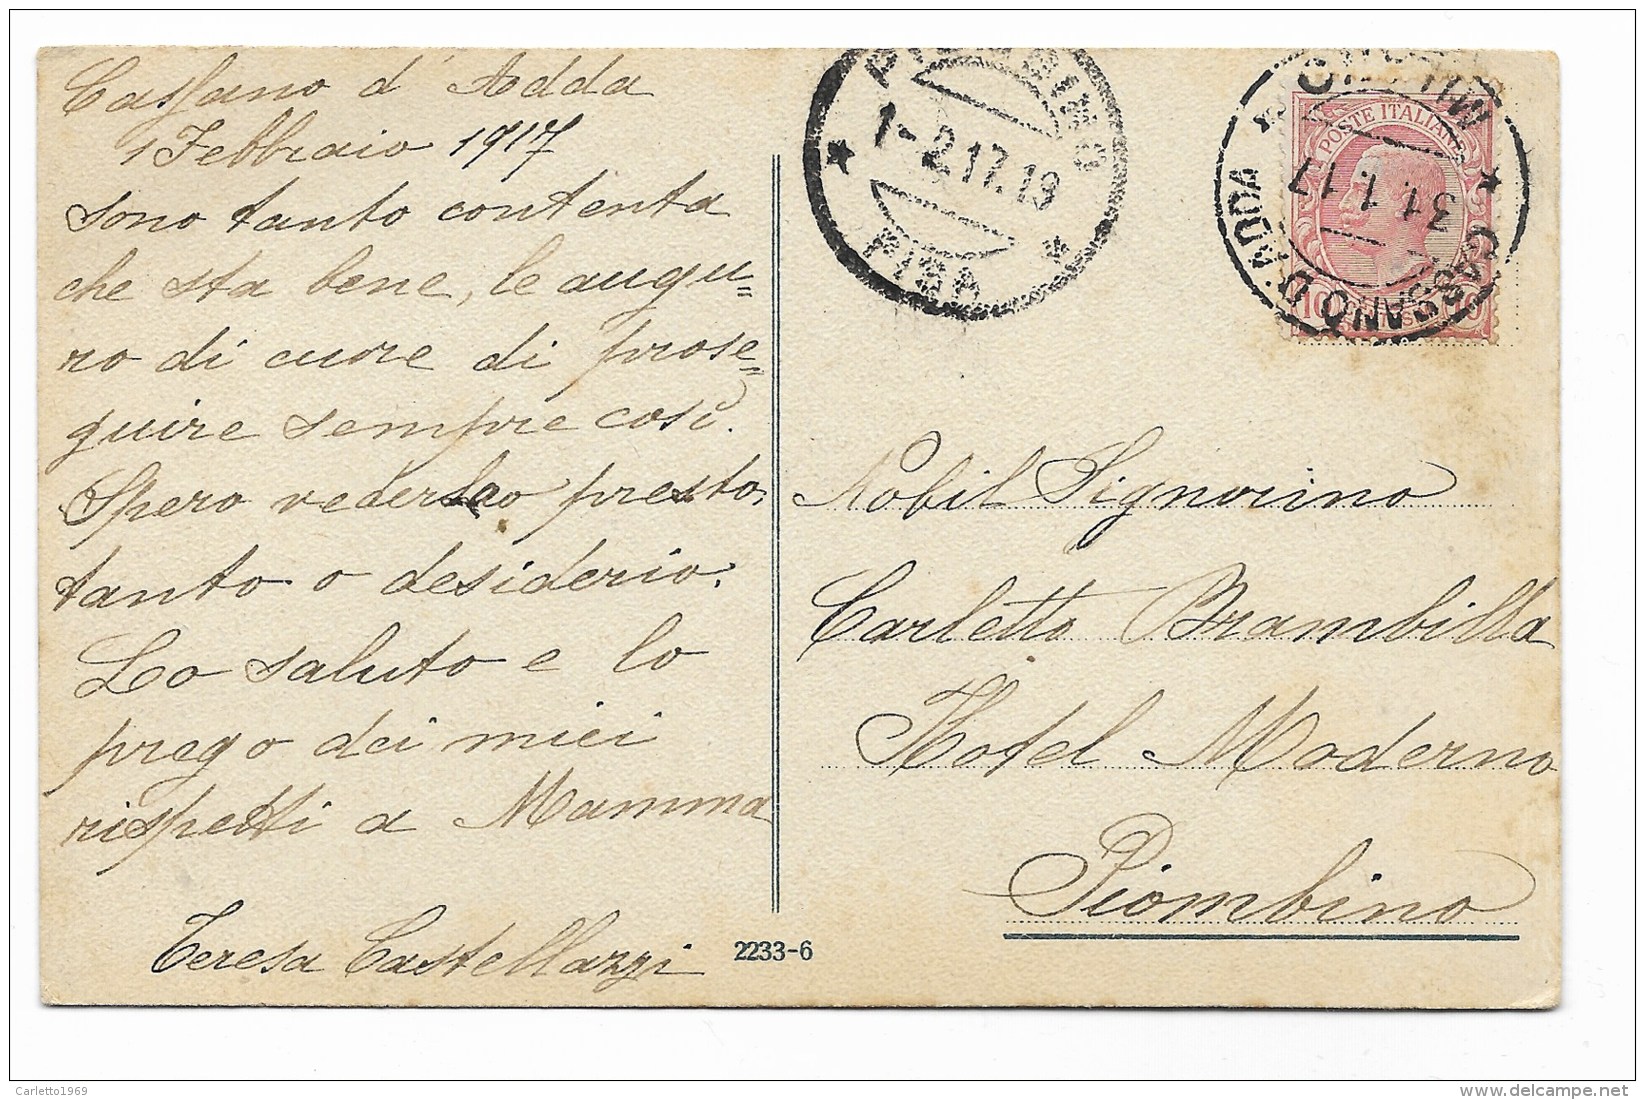 Cassano d'Adda
1 Febbraio 1917
sono tanto contenta
che sta bene, le augu=
ro di cuore di prose=
guire sempre così.
Spero vederlo presto,
tanto o desiderio.
Lo saluto e lo
prego dei miei
rispetti a Mamma
Teresa Castellazzi
2233-6
PIOMBINO
1-2.17.19
PISA
POSTE ITALIANE
10
CASSANO D'ADDA
MILANO
31.1.17
Nobil Signorino
Carletto Brambilla
Hotel Moderno
Piombino
Carletto1969
delcampe.net